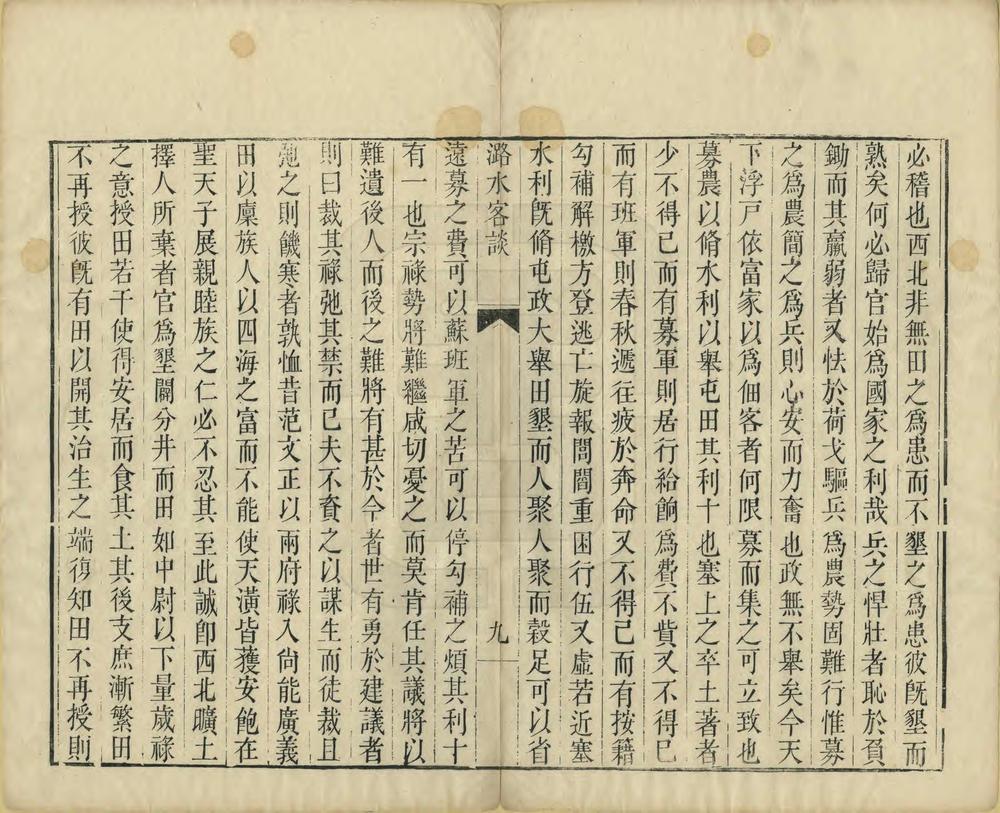 必稽也西北非無田之爲患而不墾之爲患彼旣墾而
熟矣何必歸官始爲國家之利哉兵之悍壯者恥於負
鋤而其羸弱者又怯於荷戈驅兵爲農勢固難行惟募
之爲農簡之爲兵則心安而力奮也政無不舉矣今天
下浮戸依富家以爲佃客者何限募而集之可立致也
募農以脩水利以舉屯田其利十也塞上之卒土著者
少不得已而有募軍則居行給餉爲費不貲又不得已
而有班軍則春秋遞往疲於奔命又不得已而有按籍
勾補解檄方登逃亡旋報閭閻重困行伍又虛若近塞
水利旣脩屯政大舉田墾而人聚人聚而穀足可以省
潞水客談
九
遠募之費可以蘇班軍之苦可以停勾補之煩其利十
有一也宗祿勢將難繼咸切憂之而莫肯任其議將以
難遺後人而後之難將有甚於今者世有勇於建議者
則曰裁其祿弛其禁而已夫不資之以謀生而徒裁且
弛之則饑寒者孰恤昔范文正以兩府祿入尙能廣義
田以廩族人以四海之富而不能使天潢皆獲安飽在
聖天子展親睦族之仁必不忍其至此誠卽西北曠土
擇人所棄者官爲墾闢分井而田如中尉以下量歲祿
之意授田若干使得安居而食其土其後支庶漸繁田
不再授彼旣有田以開其治生之端復知田不再授則